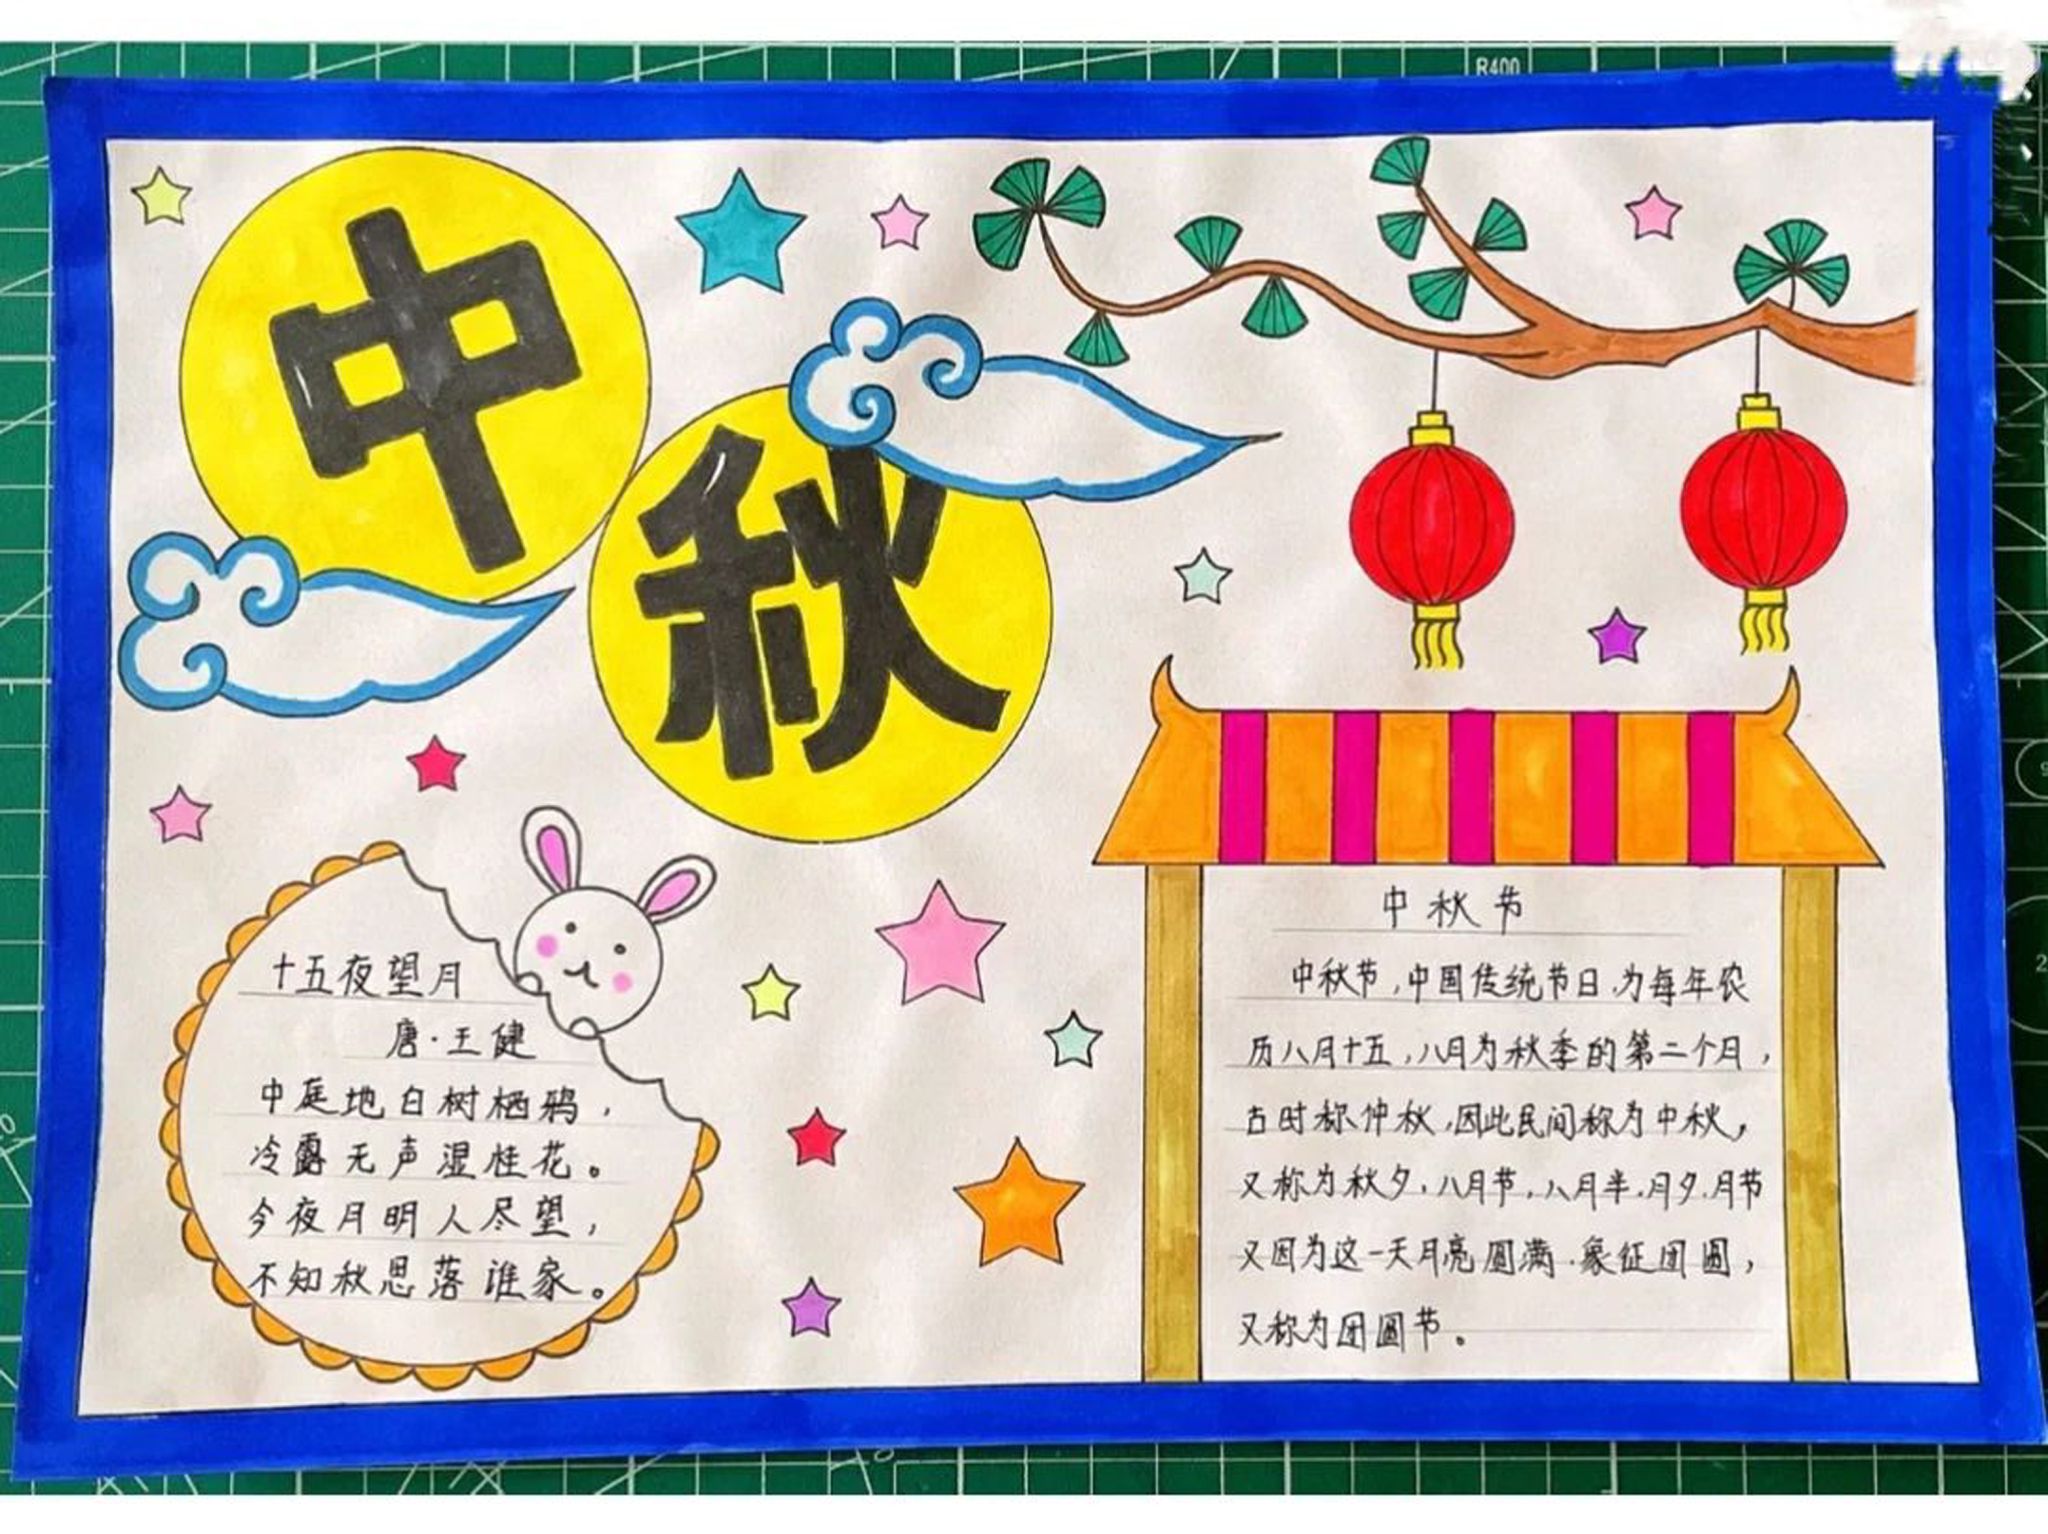 R400
中
秋
十五夜望月
唐·王健
中庭地白树栖鸦，
冷露无声湿桂花。
今夜月明人尽望，
不知秋思落谁家。
中秋节
中秋节，中国传统节日，为每年农
历八月十五，八月为秋季的第二个月，
古时称仲秋，因此民间称为中秋，
又称为秋夕，八月节，八月半，月夕，月节
又因为这一天月亮圆满，象征团圆，
又称为团圆节。